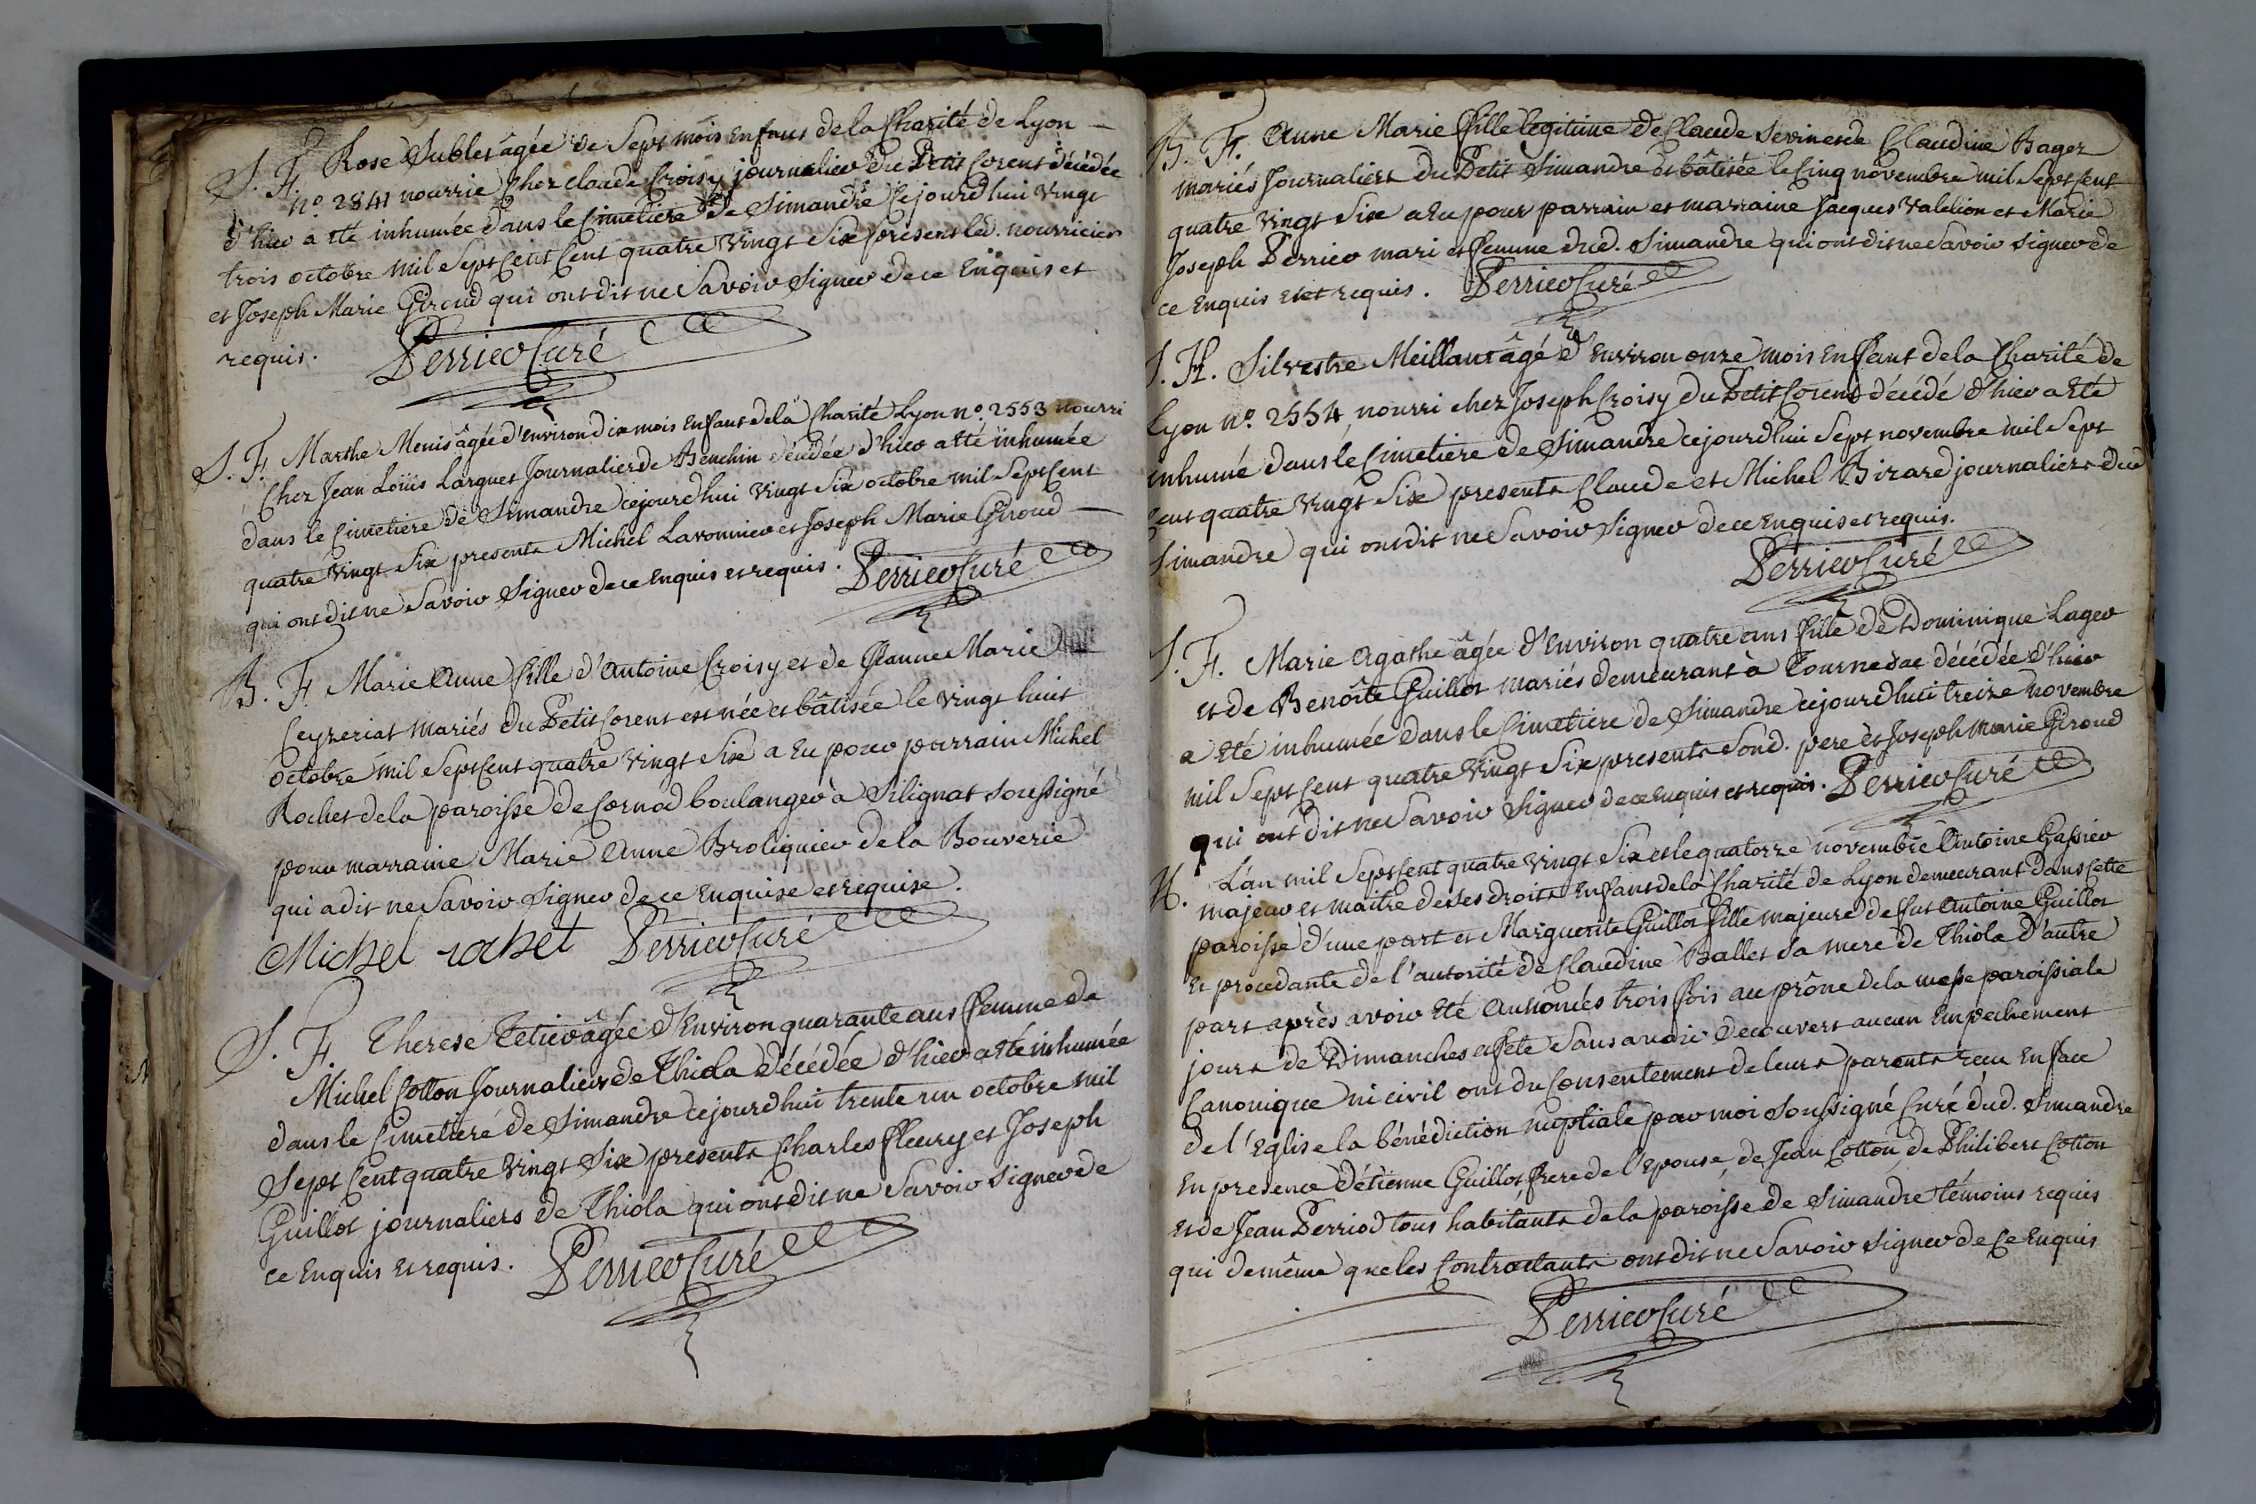 S. F. Rose Sublet âgée de Sept mois Enfant de la Charité de Lyon
n.º 2841 nourrie Chez Claude Croisy journalier du Petit Corent décédée
d'hier a été inhumée dans le Cimetiere de Simandre Cejourd'hui Vingt
trois octobre mil Sept Cent quatre Vingt Six présens led. nourricier
et Joseph Marie Giroud qui ont dit ne Savoir Signer de ce Enquis et
requis. Perrier Curé
S. F. Marthe Menis âgée d'Environ dix mois Enfant de la Charité Lyon n.º 2553 nourri
Chez Jean Loüis Larguet Journalier de Benchin décédée d'hier a été inhumée
dans le Cimetiere de Simandre cejourd'hui Vingt Six octobre mil Sept Cent
quatre Vingt Six presents Michel Lavonnier et Joseph Marie Giroud
qui ont dit ne Savoir Signer de ce Enquis et requis. Perrier Curé
B. F. Marie Anne fille d'Antoine Croisy et de Jeanne Marie
Ceyzeriat mariés du Petit Corent est née et bâtisée le Vingt huit
octobre mil Sept Cent quatre Vingt Six a Eu pour parrain Michel
Rochet de la paroisse de Cornod boulanger à Silignat Soussigné
pour marraine Marie Anne Broliquier de la Bouverie
qui a dit ne Savoir Signer de ce Enquise et requise.
Michel rochet Perrier Curé
S. F. Therese Tetier âgée d'Environ quarante ans femme de
Michel Cotton Journalier de Thiola décédée d'hier a été inhumée
dans le Cimetiere de Simandre cejourd'hui trente un octobre mil
Sept Cent quatre Vingt Six presents Charles Fleury et Joseph
Guillot journaliers de Thiola qui ont dit ne Savoir Signer de
ce Enquis et requis. Perrier Curé
B. F. Anne Marie fille legitime de Claude Sevin et de Claudine Bager
mariés Journaliers du Petit Simandre est bâtisée le Cinq novembre mil Sept Cent
quatre Vingt Six a Eu pour parrain et marraine Jacques Valelion et Marie
Joseph Perrier mari et femme dud. Simandre qui ont dit ne Savoir Signer de
ce Enquis et requis. Perrier Curé
S. H. Silvestre Meillant âgé d'Environ onze mois Enfant de la Charité de
Lyon n.º 2554, nourri chez Joseph Croisy du Petit Corent décédé d'hier a été
inhumé dans le Cimetiere de Simandre cejourd'hui Sept novembre mil Sept
Cent quatre Vingt Six presents Claude et Michel Birard journaliers dud
Simandre qui ont dit ne Savoir Signer de ce Enquis et requis.
Perrier Curé
S. F. Marie Agathe âgée d'Environ quatre ans fille de Dominique Lager
et de Benoîte Guillot mariés demeurant à Tournesac décédée d'hier
a été inhumée dans le Cimetiere de Simandre cejourd'hui treize novembre
mil Sept Cent quatre Vingt Six presents Sond. pere et Joseph Marie Giroud
qui ont dit ne Savoir Signer de ce Enquis et requis. Perrier Curé
M. L'an mil Sept Cent quatre Vingt Six et le quatorze novembre Antoine Gassier
majeur et maitre de ses droits Enfant de la Charité de Lyon demeurant dans Cette
paroisse d'une part et Marguerite Guillot fille majeure de fut Antoine Guillot
Et procedante de l'autorité de Claudine Ballet Sa mere de Thiola d'autre
part après avoir été Annoncés trois fois au prône de la messe paroissiale
jours de Dimanches et fete Sans avoir decouvert aucun Empechement
Canonique ni civil ont du Consentement de leurs parents reçu En face
de l'Eglise la bénédiction nuptiale par moi Soussigné Curé dud. Simandre
En presence d'étienne Guillot frere de l'Epouse, de Jean Cotton, de Philibert Cotton
et de Jean Perriod tous habitants de la paroisse de Simandre témoins requis
qui de même que les Contractants ont dit ne Savoir Signer de Ce Enquis
Perrier Curé